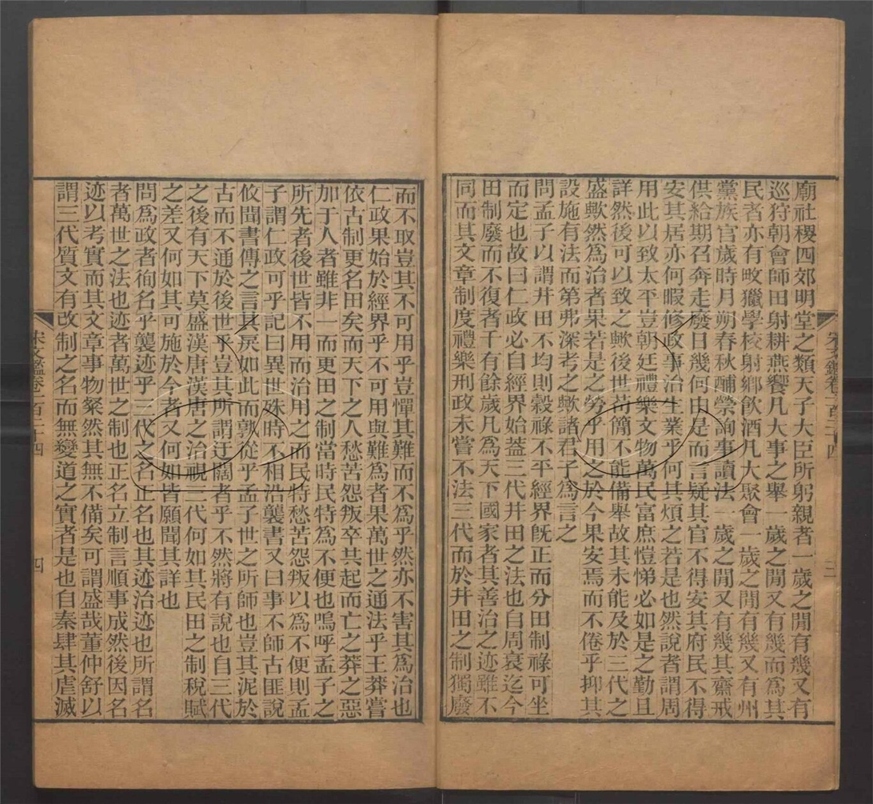 廟社稷四郊明堂之類天子大臣所躬親者一歲之閒有幾又有
巡狩朝會師田射耕燕饗凡大事之舉一歲之閒又有幾而為其
民者亦有畋獵學校射鄉飲酒凡大聚會一歲之閒有幾又有州
黨族官歲時月朔春秋酺禜詢事讀法一歲之閒又有幾其齋戒
供給期召奔走廢日幾何由是而言疑其官不得安其府民不得
安其居亦何暇修政事治生業乎何其煩之若是也然說者謂周
用此以致太平豈朝廷禮樂文物萬民富庶愷悌必如是之勤且
詳然後可以致之歟後世苟簡不能備舉故其未能及於三代之
盛歟然為治者果若是之勞乎用之於今果安焉而不倦乎抑其
設施有法而第弗深考之歟諸君子為言之
問孟子以謂井田不均則穀祿不平經界旣正而分田制祿可坐
而定也故曰仁政必自經界始蓋三代井田之法也自周衰迄今
田制廢而不復者千有餘歲凡為天下國家者其善治之迹雖不
同而其文章制度禮樂刑政未嘗不法三代而於井田之制獨廢
宋文鑑卷一百二十四
三
而不取豈其不可用乎豈憚其難而不為乎然亦不害其為治也
仁政果始於經界乎不可用與難為者果萬世之通法乎王莽嘗
依古制更名田矣而天下之人愁苦怨叛卒共起而亡之莽之惡
加于人者雖非一而更田之制當時民特為不便也嗚呼孟子之
所先者後世皆不用而治用之而民特愁苦怨叛以為不便則孟
子謂仁政可乎記曰異世殊時不相沿襲書又曰事不師古匪說
攸聞書傳之言其戾如此而孰從乎孟子世之所師也豈其泥於
古而不通於後世乎豈其所謂迂闊者乎不然將有說也自三代
之後有天下莫盛漢唐漢唐之治視三代何如其民田之制稅賦
之差又何如其可施於今者又何如皆願聞其詳也
問為政者徇名乎襲迹乎三代之名正名也其迹治迹也所謂名
者萬世之法也迹者萬世之制也正名立制言順事成然後因名
迹以考實而其文章事物粲然其無不備矣可謂盛哉董仲舒以
謂三代質文有改制之名而無變道之實者是也自秦肆其虐滅
宋文鑑卷一百二十四
四